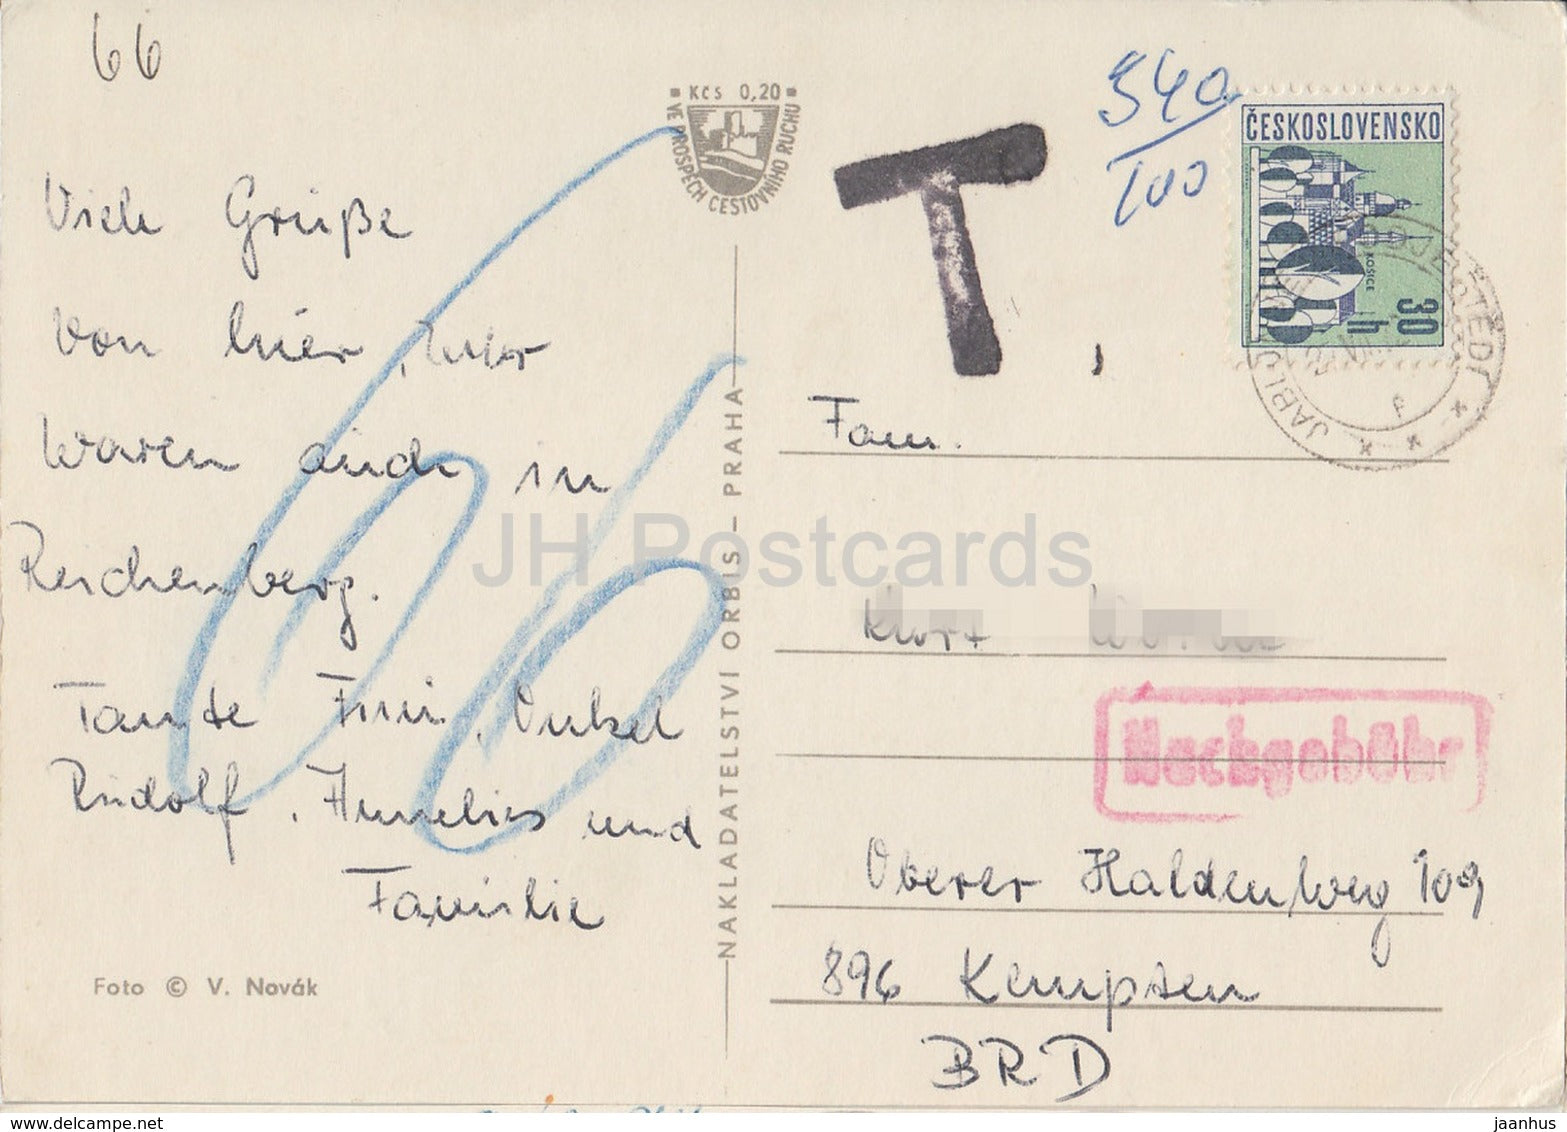 66
Kčs 0,20
VE PROSPĚCH CESTOVNÍHO RUCHU
T
540
100
ČESKOSLOVENSKO
KOŠICE
30
h
Viele Grüße
von hier,
waren auch in
Reichenberg.
Tante Finni, Onkel
Rudolf, Annelies und
Familie
06
Foto © V. Novák
NAKLADATELSTVÍ ORBIS – PRAHA
Fam.
Kurt
Nachgebühr
Oberer Haldenweg 109
896 Kempten
BRD
JH Postcards
www.delcampe.net
jaanhus